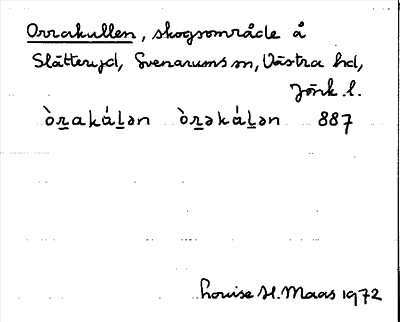 Orrakullen, skogsområde å
Slätteryd, Svenarums sn, Västra hd,
Jönk. l.
òṟakáḻən òṟəkáḻən 887
Louise H. Maas 1972